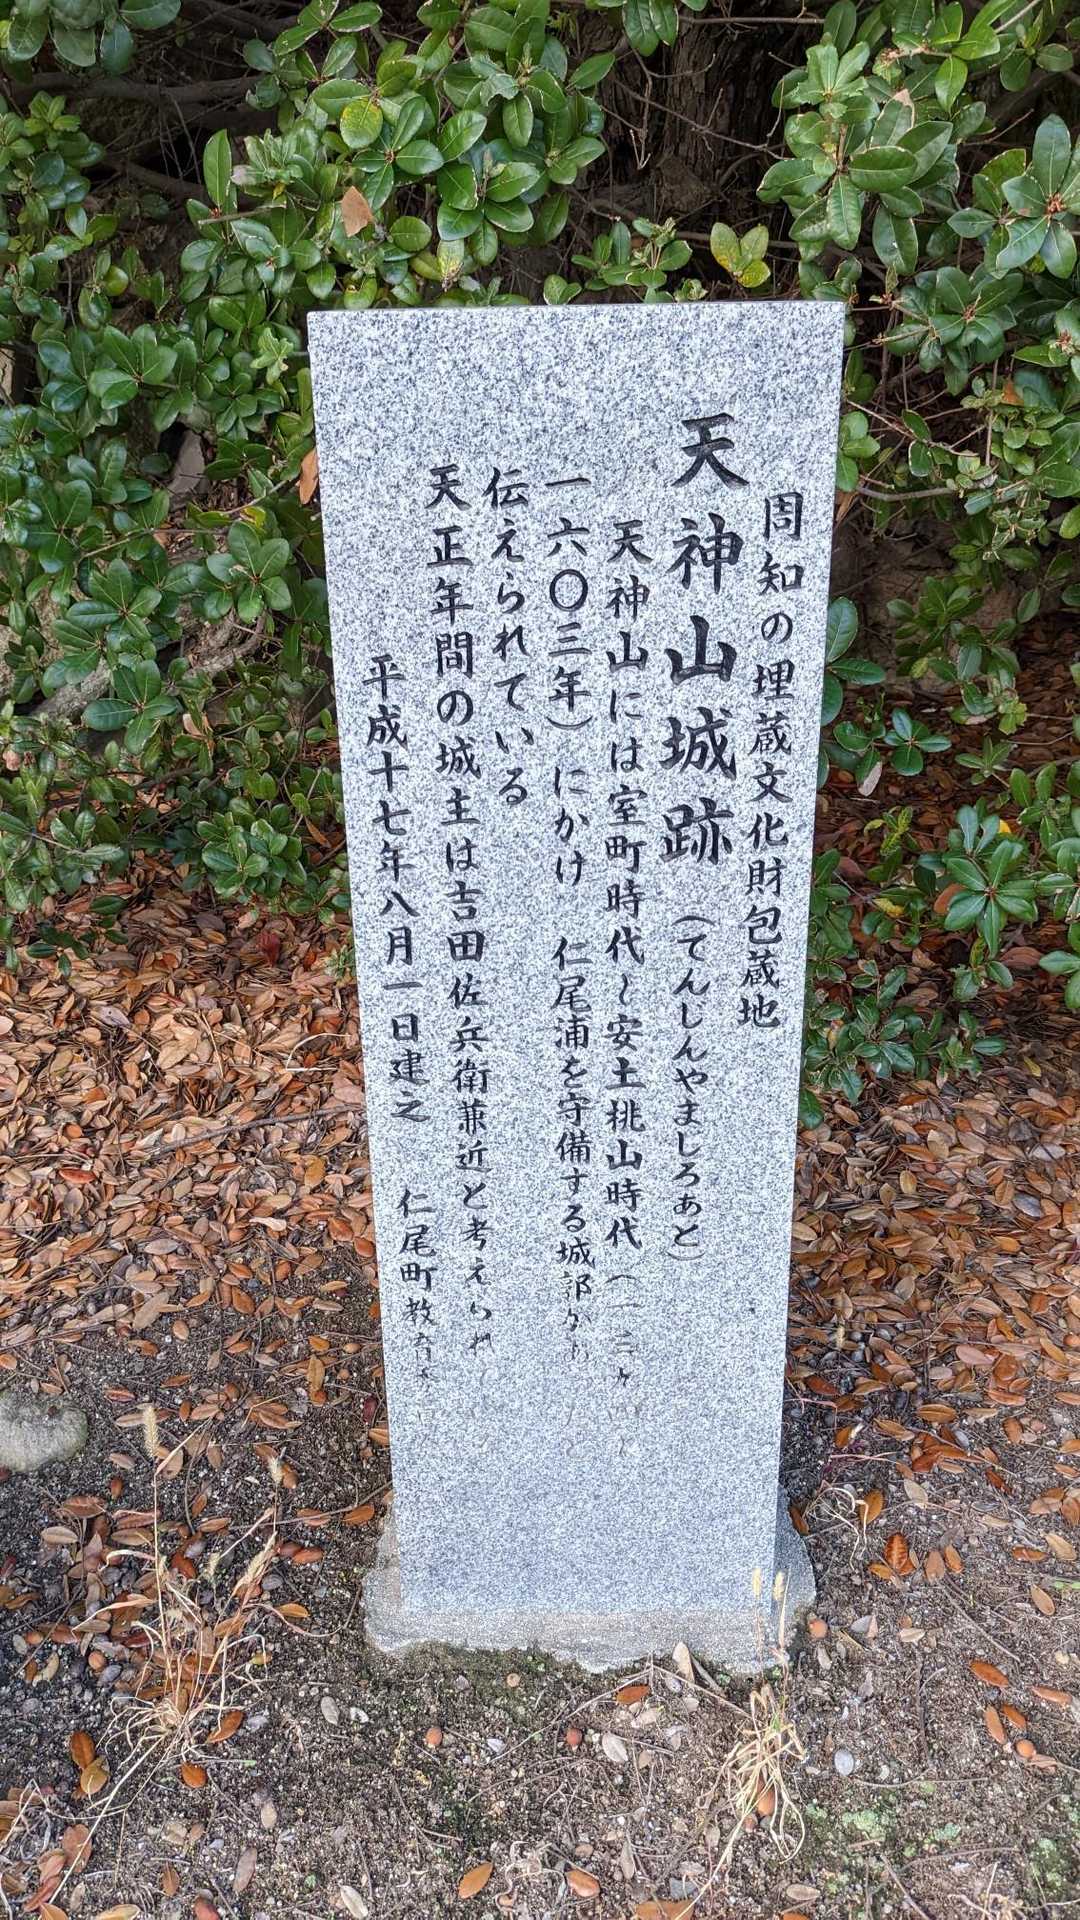 周知の埋蔵文化財包蔵地
天神山城跡（てんじんやましろあと）
天神山には室町時代～安土桃山時代（一三
一六〇三年）にかけ 仁尾浦を守備する城郭があ
伝えられている
天正年間の城主は吉田佐兵衛兼近と考えられ
平成十七年八月一日建之 仁尾町教育